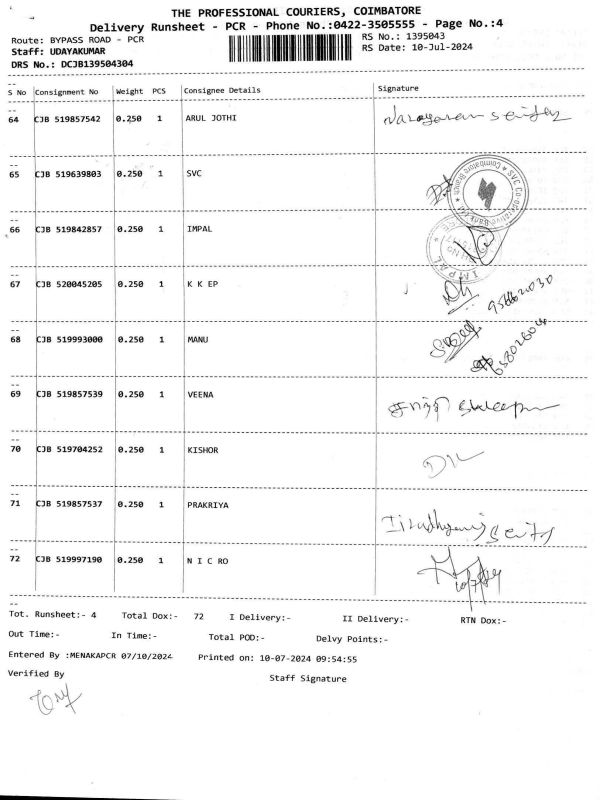 THE PROFESSIONAL COURIERS, COIMBATORE
Delivery Runsheet - PCR - Phone No.:0422-3505555 - Page No.:4
Route: BYPASS ROAD - PCR
RS No.: 1395043
Staff: UDAYAKUMAR
RS Date: 10-Jul-2024
DRS No.: DCJB139504304
S No Consignment No Weight PCS Consignee Details Signature
64 CJB 519857542 0.250 1 ARUL JOTHI
65 CJB 519639803 0.250 1 SVC
SVC Co-operative Bank Ltd. * Coimbatore Branch *
66 CJB 519842857 0.250 1 IMPAL
IMPAL
67 CJB 520045205 0.250 1 K K EP
68 CJB 519993000 0.250 1 MANU
69 CJB 519857539 0.250 1 VEENA
70 CJB 519704252 0.250 1 KISHOR
71 CJB 519857537 0.250 1 PRAKRIYA
72 CJB 519997190 0.250 1 N I C RO
10/7/24
Tot. Runsheet:- 4 Total Dox:- 72 I Delivery:- II Delivery:- RTN Dox:-
Out Time:- In Time:- Total POD:- Delvy Points:-
Entered By :MENAKAPCR 07/10/2024 Printed on: 10-07-2024 09:54:55
Verified By Staff Signature